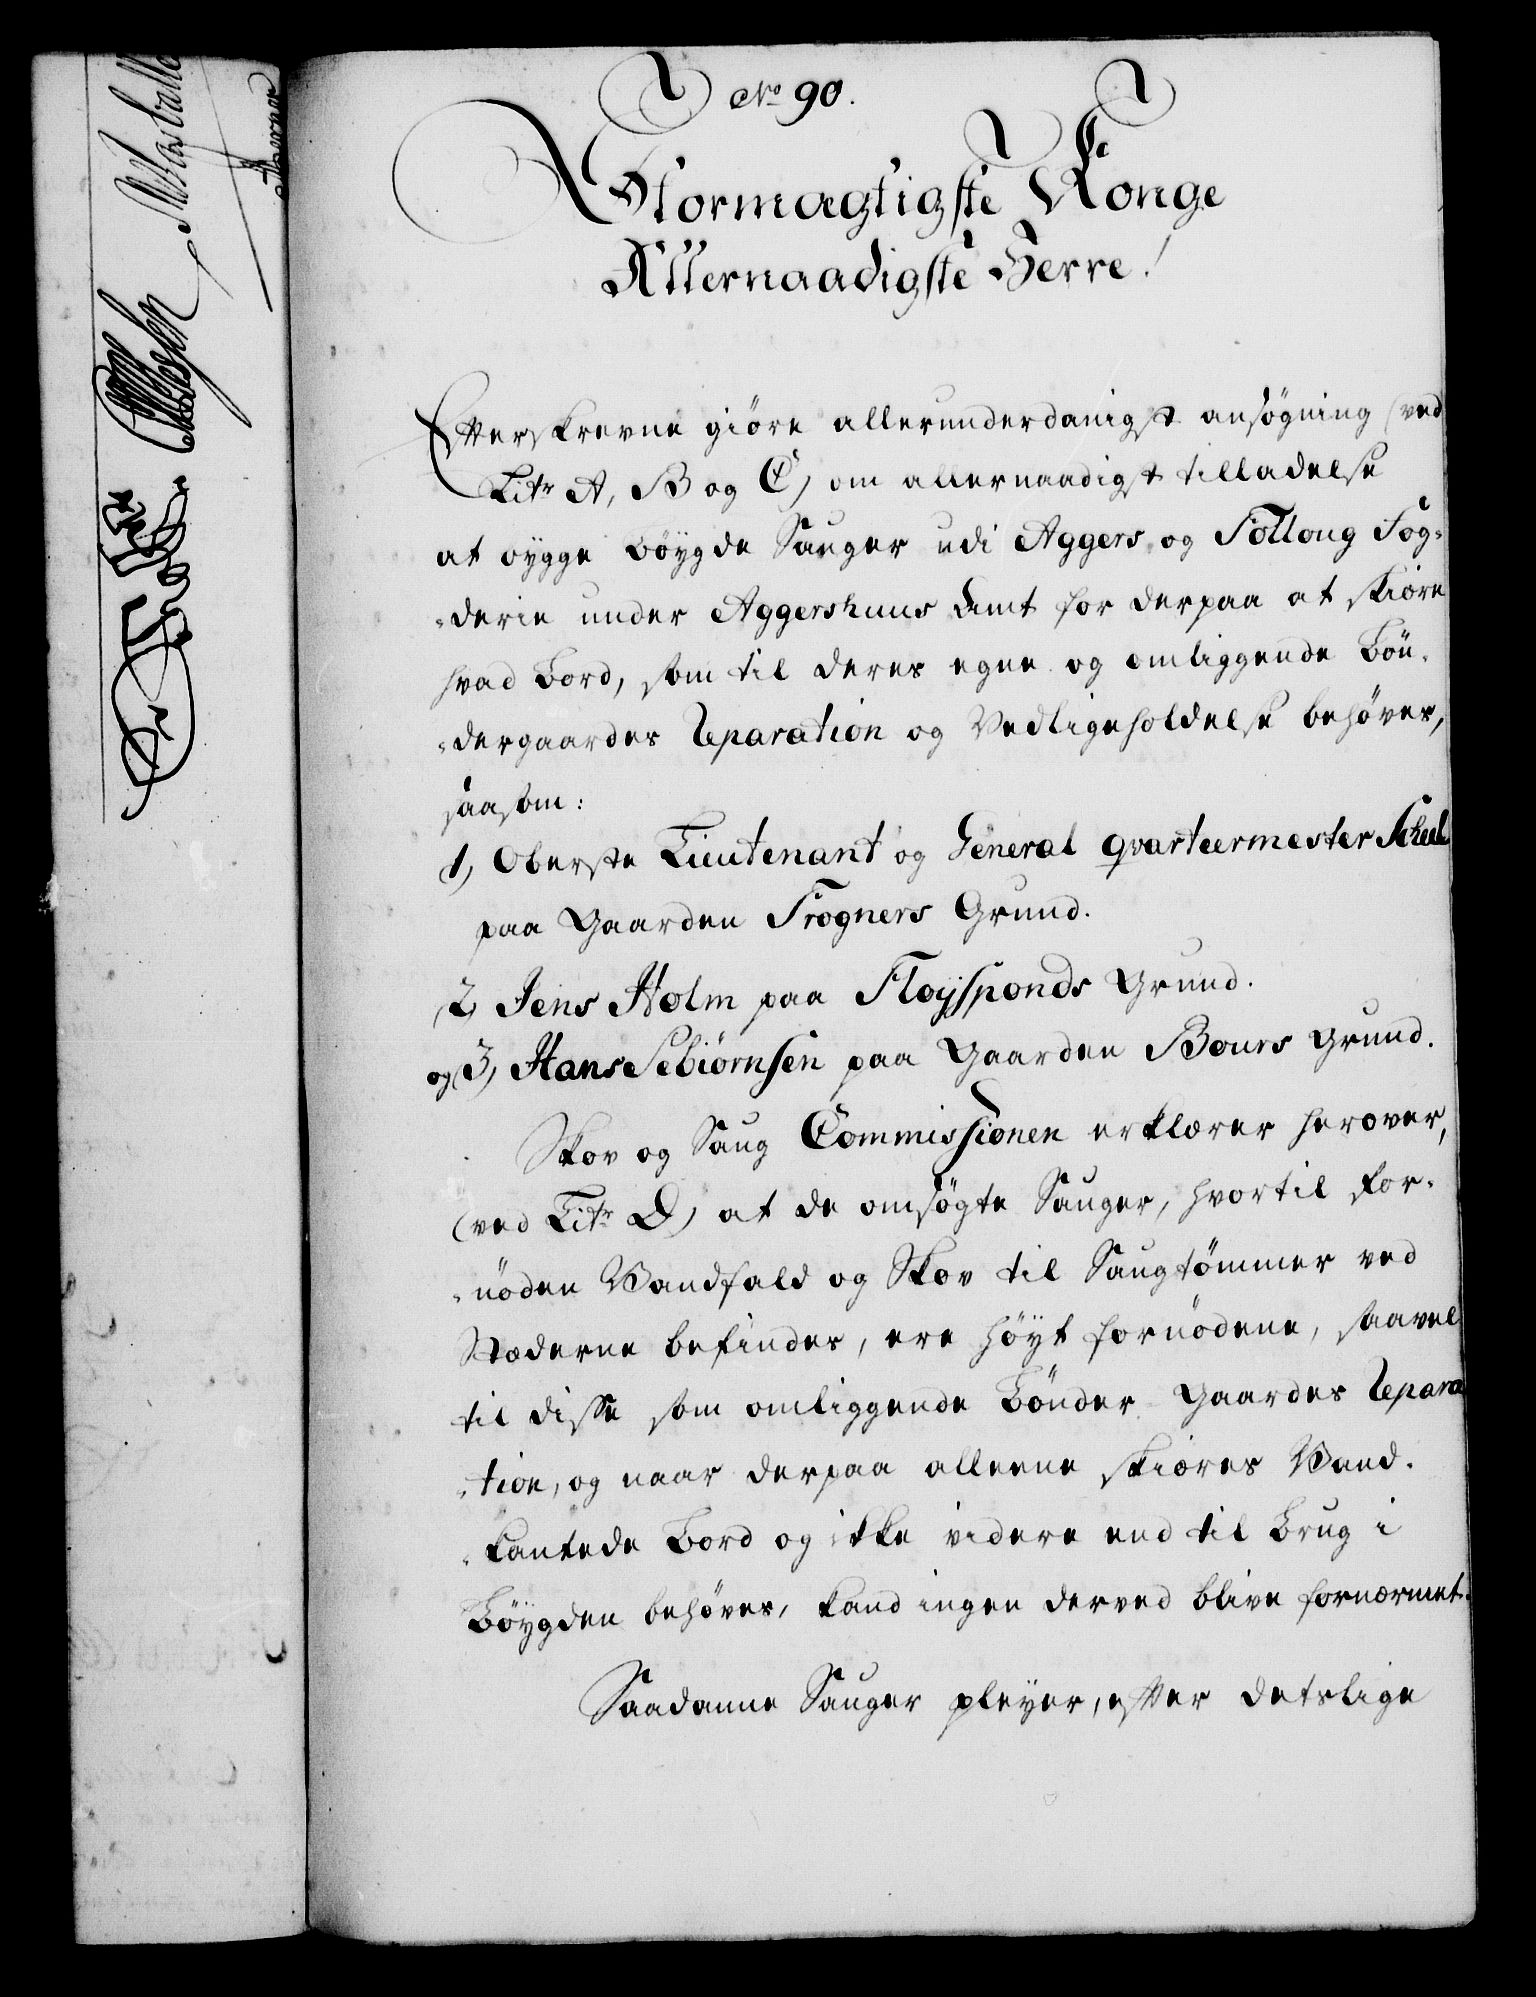 No 90.
Stormægtigste Konge
Allernaadigste Herre!
Efterskrevne giöre allerunderdanigst ansögning (ved
Litr A, B og C) om allernaadigst tilladelse
at bygge böygde Sauger udi Aggers og Folloug Fog-
-derie under Aggershuus Amt for derpaa at skiære
hvad Bord, som til deres egne og omliggende Bön-
-dergaarders Reparation og Vedligeholdelse behöves,
saasom:
1, Oberste Lieutenant og General qvarteermester Scheel
paa Gaarden Frogners Grund.
2, Jens Holm paa Floysponds Grund.
og 3, Hans Sebiørnsen paa Gaarden Bours Grund.
Skov og Saug Commissionen erklærer herover,
(ved Litr D) at de omsögte Sauger, hvortil for-
-nöden Vandfald og Skov til Saugtömmer ved
Stæderne befindes, ere höyt fornödene, saavel
til disse som omliggende Bönder Gaarders Repara
-tion, og naar derpaa alleene skiæres Vand-
-kantede Bord og ikke videre end til Brug i
Böygden behöves, kand ingen derved blive fornærmet.
Saadanne Sauger pleyer, efter detslige